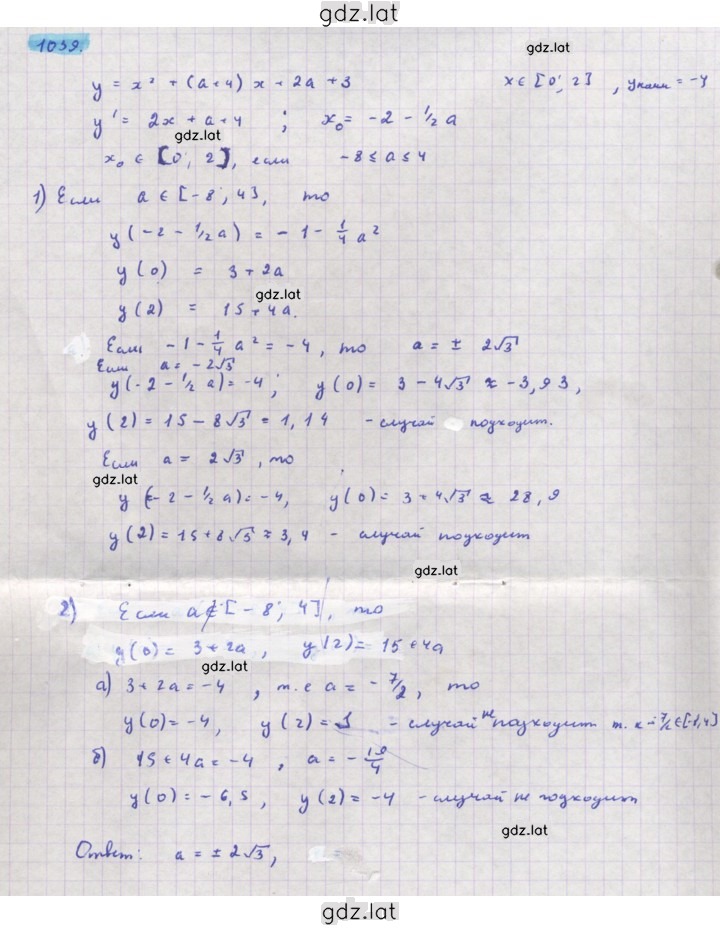 gdz.lat
1039.
gdz.lat
y = x² + (a+4) x + 2a + 3 x ∈ [0; 2] , yнаим = -4
y' = 2x + a + 4 ; x₀ = -2 - 1/2 a
gdz.lat
x₀ ∈ [0; 2], если -8 ≤ a ≤ 4
1) Если a ∈ [-8; 4], то
y(-2 - 1/2 a) = -1 - 1/4 a²
y(0) = 3 + 2a
gdz.lat
y(2) = 15 + 4a.
Если -1 - 1/4 a² = -4, то a = ± 2√3
Если a = -2√3
y(-2 - 1/2 a) = -4; y(0) = 3 - 4√3 ≈ -3,93,
y(2) = 15 - 8√3 = 1,14 - случай подходит.
Если a = 2√3, то
gdz.lat
y(-2 - 1/2 a) = -4, y(0) = 3 + 4√3 ≈ 28,9
y(2) = 15 + 8√3 ≈ 3,4 - случай подходит
gdz.lat
2) Если a ∉ [-8; 4], то
y(0) = 3 + 2a, y(2) = 15 + 4a
gdz.lat
а) 3 + 2a = -4, т.е a = -7/2, то
y(0) = -4, y(2) = 1 - случай не подходит т.к -7/2 ∈ [-1,4]
б) 15 + 4a = -4, a = -19/4
y(0) = -6,5, y(2) = -4 - случай не подходит
gdz.lat
Ответ: a = ± 2√3,
gdz.lat